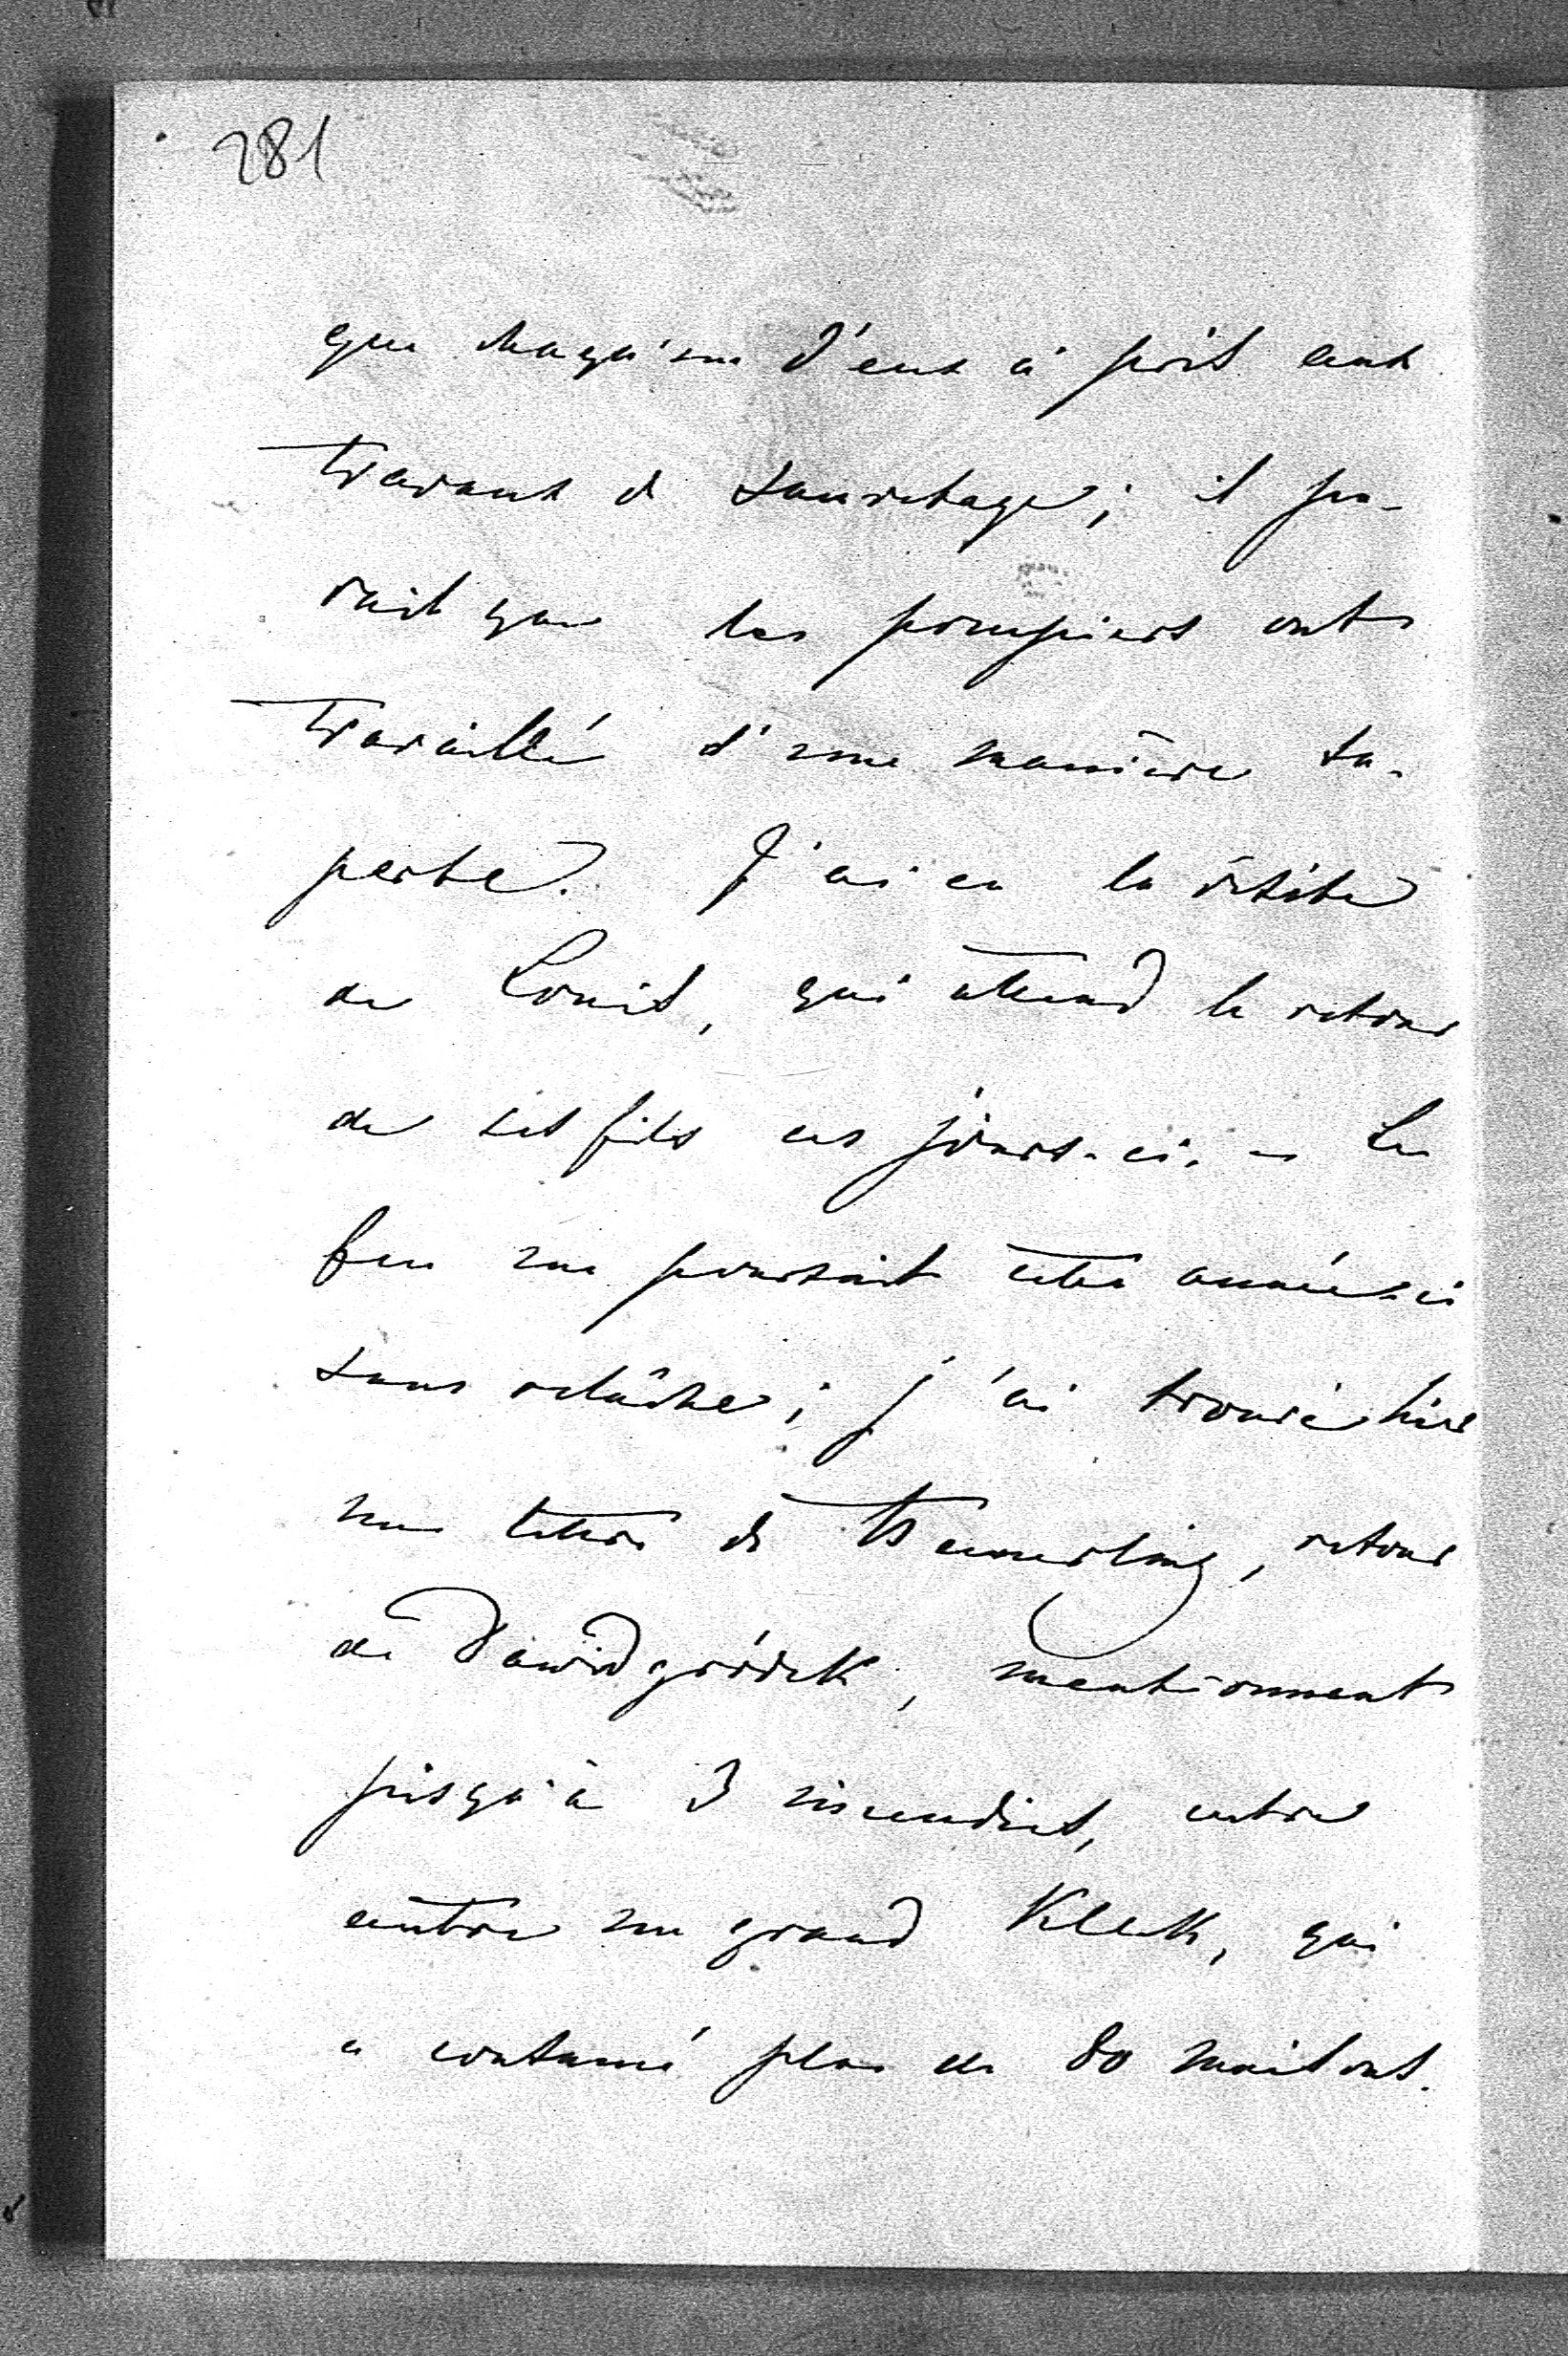 281
que chaqu'un d'eux a prit aux
travaux de sauvetage; il pa-
rait que les pompiers ont
travaillé d'une manière su-
perbe. J'ai eu la visite
de Louis, qui attend le retour
de ses fils ces jours-ci. – Le
feu me poursuit cette année-ci
sans relâche; j'ai trouvé hier
une lettre de , retour
de Dawidgródek, mentionnant
jusqu'à 3 incendies, entre
autre un grand Kleck, qui
a consumé plus de 80 maisons.